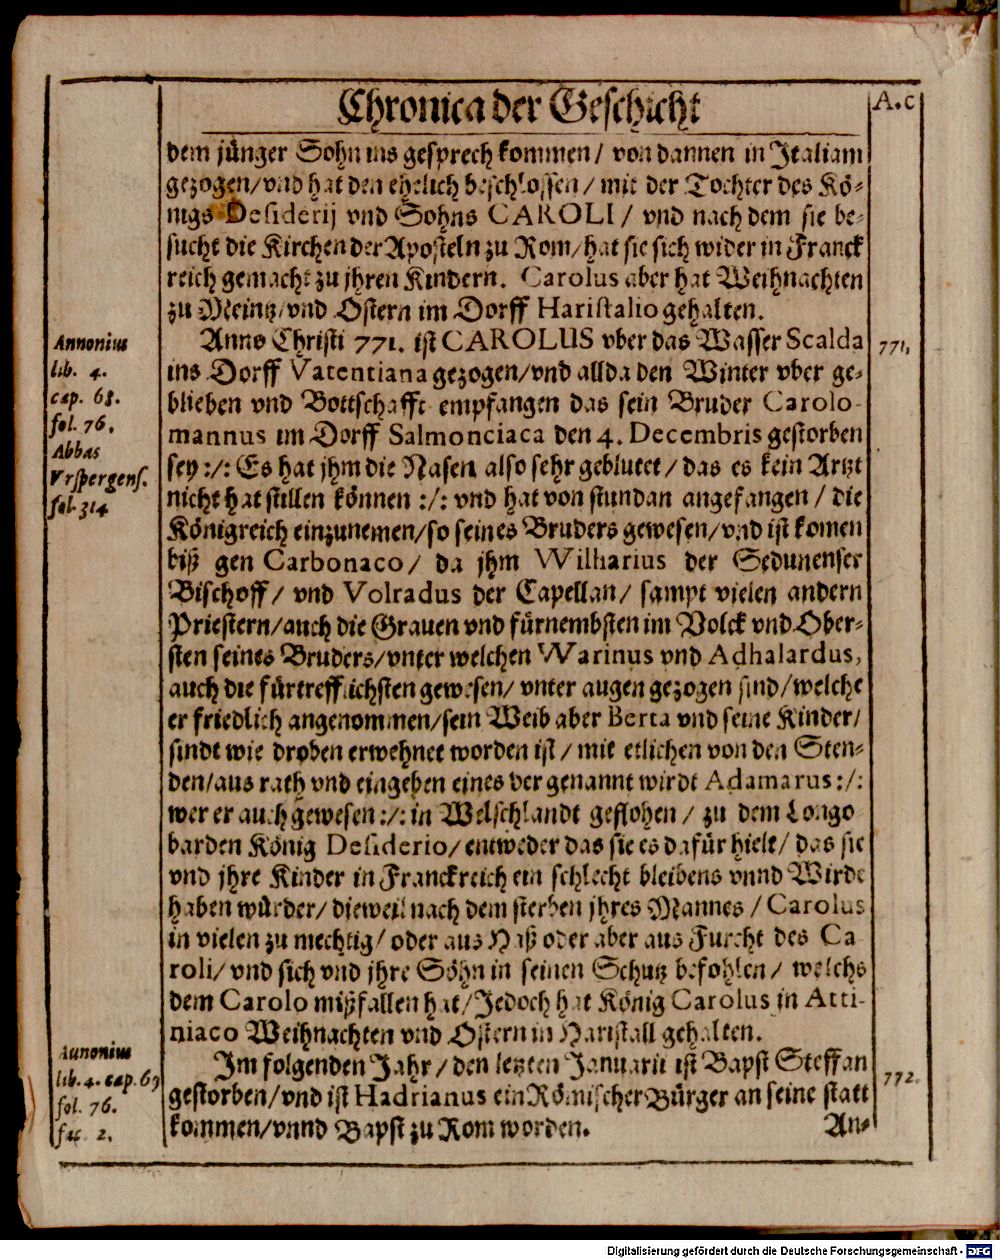 Chronica der Geschicht
A. C
dem jünger Sohn ins gesprech kommen / von dannen in Italiam
gezogen/vnd hat den ehelich beschlossen / mit der Tochter des Kö-
nigs Desiderij vnd Sohns CAROLI / vnd nach dem sie be-
sucht die Kirchen der Aposteln zu Rom/hat sie sich wider in Franck
reich gemacht zu jhren Kindern. Carolus aber hat Weihnachten
zu Meintz/vnd Ostern im Dorff Haristalio gehalten.
Anno Christi 771. ist CAROLUS vber das Wasser Scalda
ins Dorff Vatentiana gezogen/vnd allda den Winter vber ge-
blieben vnd Bottschafft empfangen das sein Bruder Carolo-
mannus im Dorff Salmonciaca den 4. Decembris gestorben
sey :/: Es hat jhm die Nasen also sehr geblutet / das es kein Artzt
nicht hat stillen können :/: vnd hat von stundan angefangen / die
Königreich einzunemen/so seines Bruders gewesen/vnd ist komen
biß gen Carbonaco / da jhm Wilharius der Sedunenser
Bischoff / vnd Volradus der Capellan / sampt vielen andern
Priestern/auch die Grauen vnd fürnembsten im Volck vnd Ober-
sten seines Bruders/vnter welchen Warinus vnd Adhalardus,
auch die fürtrefflichsten gewesen/ vnter augen gezogen sind/welche
er friedlich angenommen/sein Weib aber Berta vnd seine Kinder/
sindt wie droben erwehnet worden ist / mit etlichen von den Sten-
den/aus rath vnd eingeben eines der genannt wirdt Adamarus :/:
wer er auch gewesen :/: in Welschlandt geflohen / zu dem Longo
barden König Desiderio/ entweder das sie es dafür hielt/ das sie
vnd jhre Kinder in Franckreich ein schlecht bleibens vnnd Wirde
haben würder/ dieweil nach dem sterben jhres Mannes / Carolus
in vielen zu mechtig/ oder aus Haß oder aber aus Furcht des Ca
roli/ vnd sich vnd jhre Söhn in seinen Schutz befohlen / welchs
dem Carolo mißfallen hat/Jedoch hat König Carolus in Atti-
niaco Weihnachten vnd Ostern in Haristall gehalten.
Im folgenden Jahr / den letzten Januarii ist Bapst Steffan
gestorben/vnd ist Hadrianus ein Römischer Bürger an seine statt
kommen/vnnd Bapst zu Rom worden.
An-
Annonius
lib. 4.
cap. 68.
fol. 76.
Abbas
Vrspergens.
fol. 314
771.
Annonius
lib. 4. cap. 69
fol. 76.
fac. 2.
772.
Digitalisierung gefördert durch die Deutsche Forschungsgemeinschaft - DFG